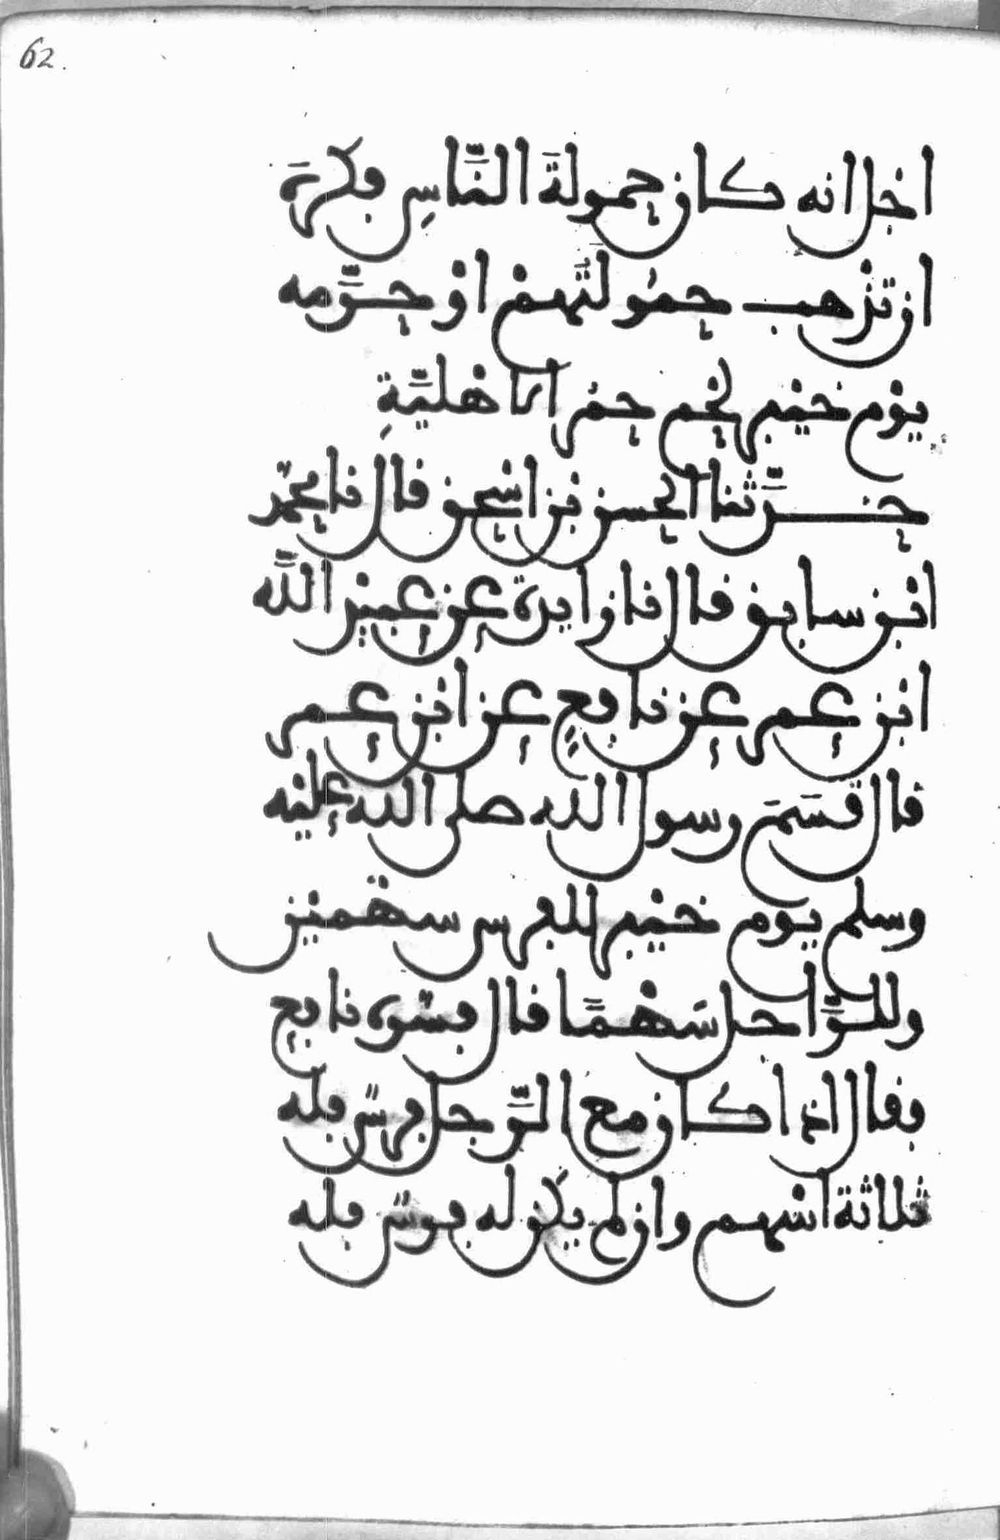 62.
اجل انه كان حمولةَ النّاسِ فكرِهَ
ان تذْهب حمُولَتهمْ اوْ حرّمه
يوْم خيْبر لحْم حمُر الاهْليّةِ
حدّثنا الحسن بْن اسْحق قال نا محمّد
ابْن سابق قال نا زايدة عن عبيْد اللّه
ابْن عمر عن نافعٍ عن ابْن عمر
قال قَسَمَ رسول الله صلى الله عليْه
وسلم يوم خيْبر للفرس سهْميْن
وللرّاجل سَهْمًا قال فسّره نافع
فقال اذا كان مع الرّجل فرسٌ فله
ثلاثة اسْهم وان لم يكن له فرسٌ فله